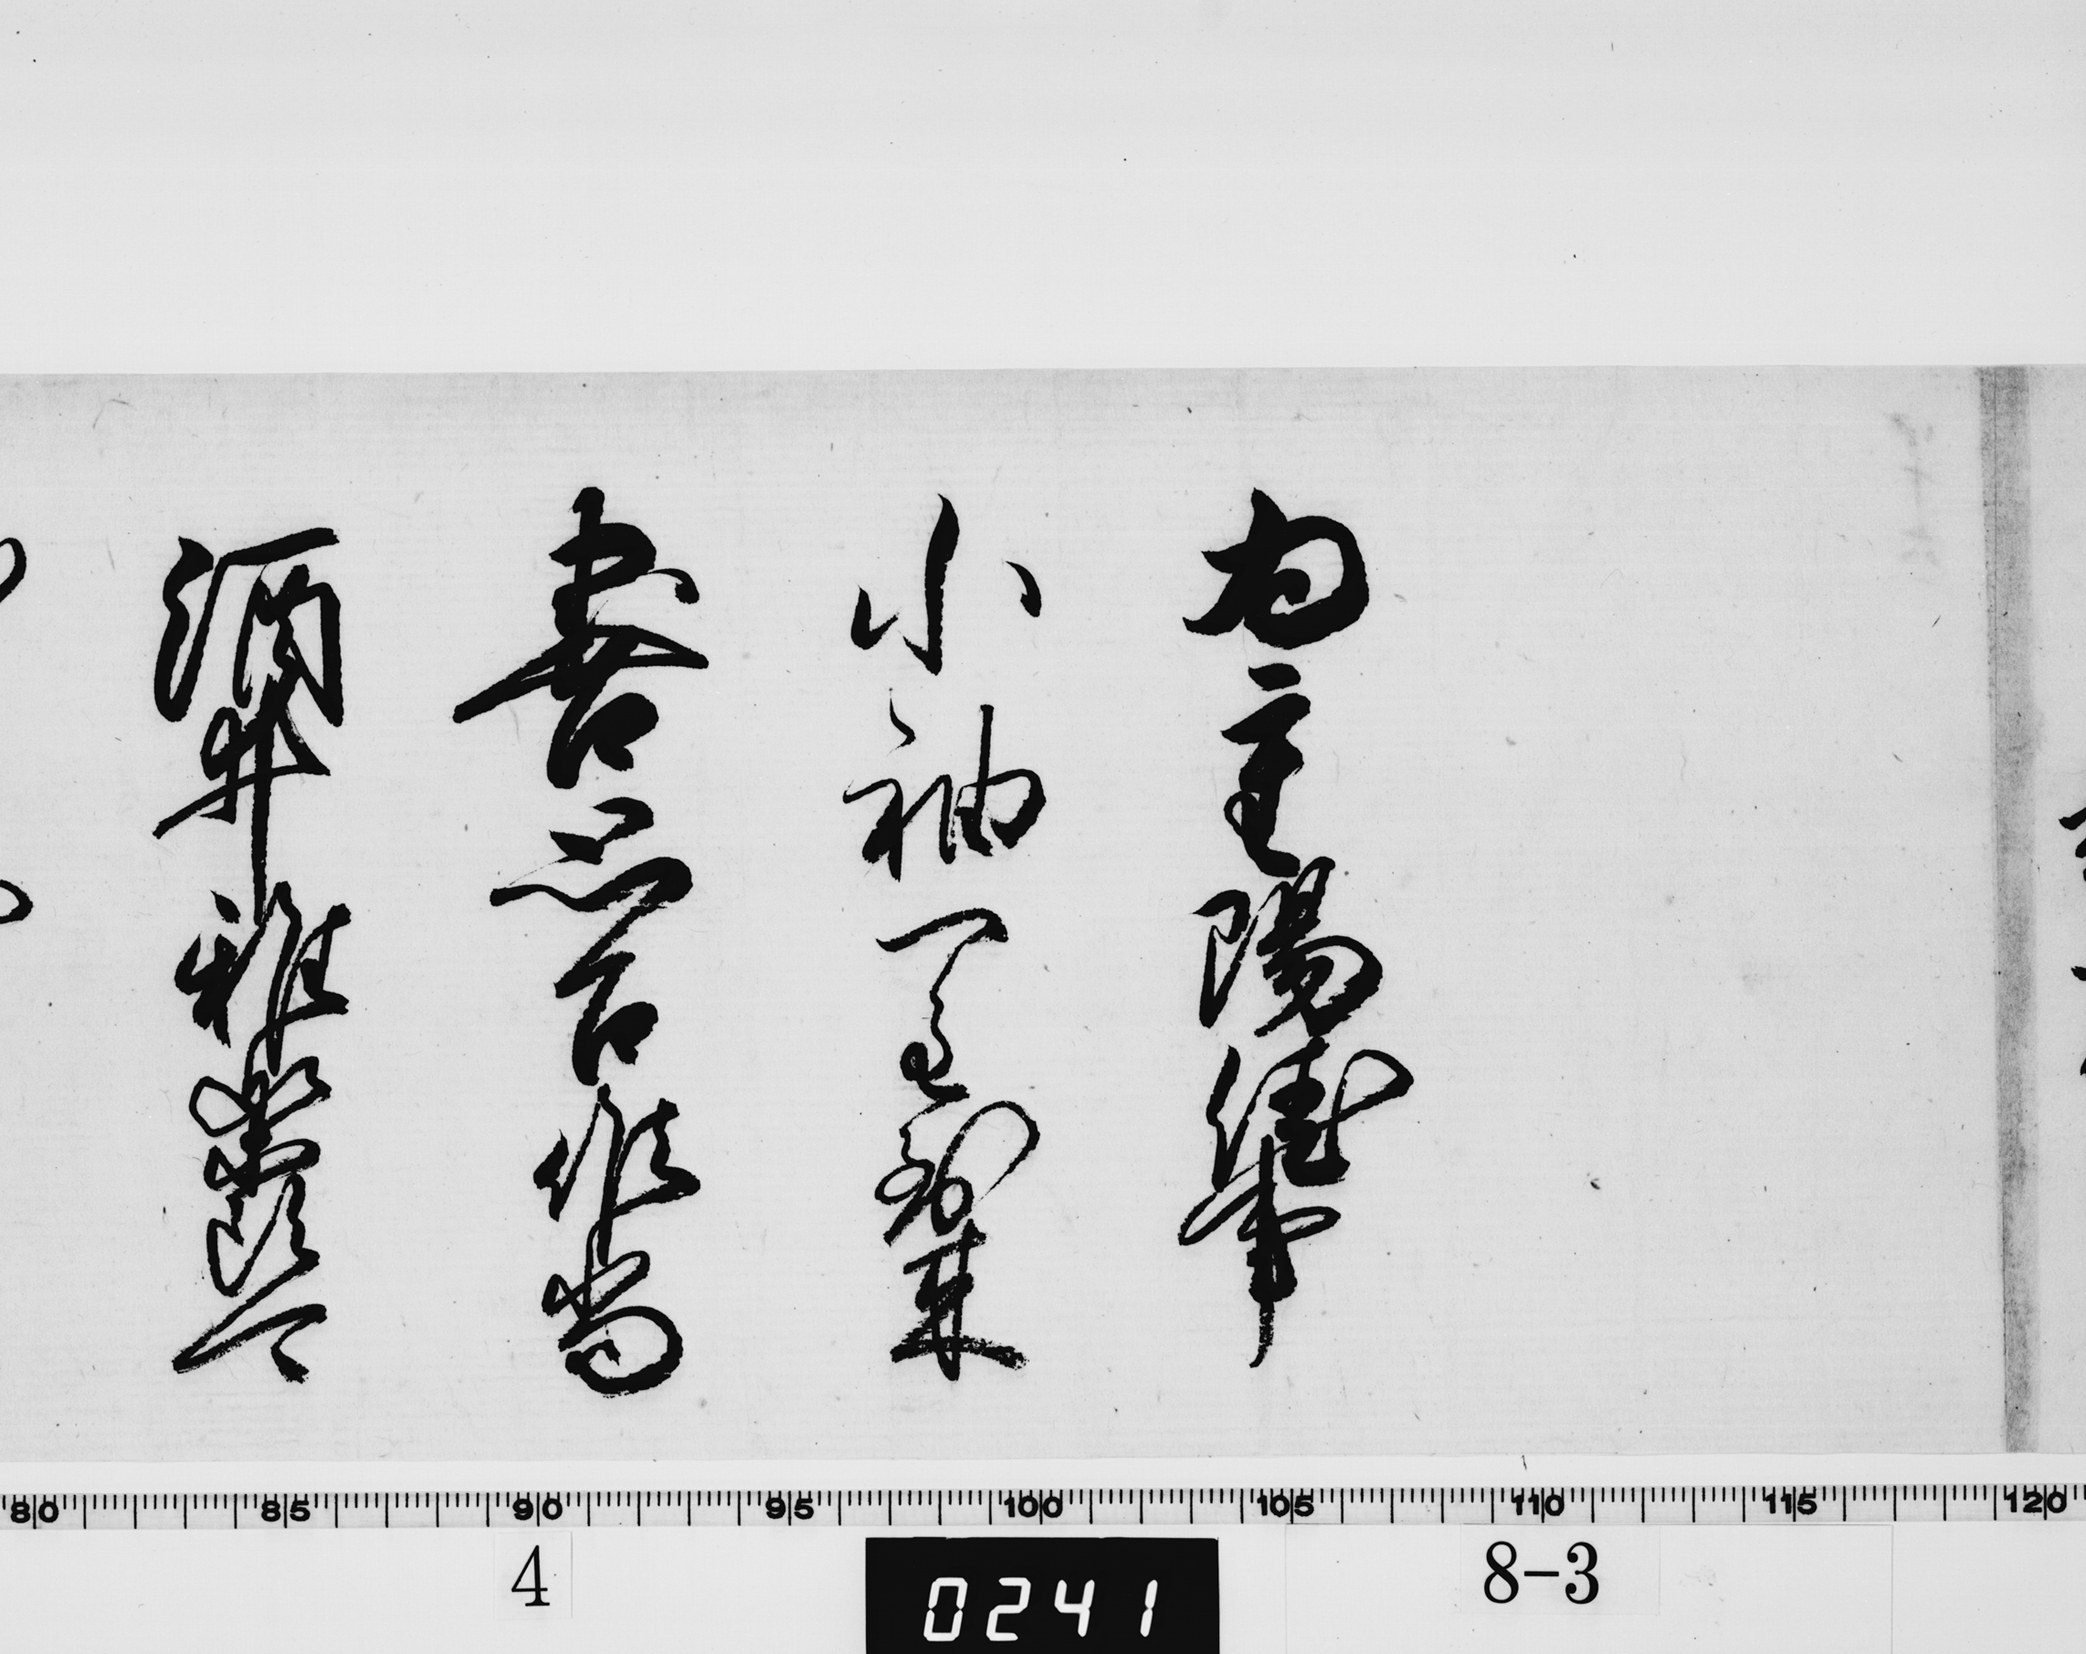 為重陽
小袖一重到来
喜思召候尚
酒井雅楽頭可
80 85 90 95 100 105 110 115 120
4
0241
8-3